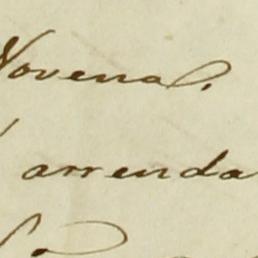 Novena.
arrenda